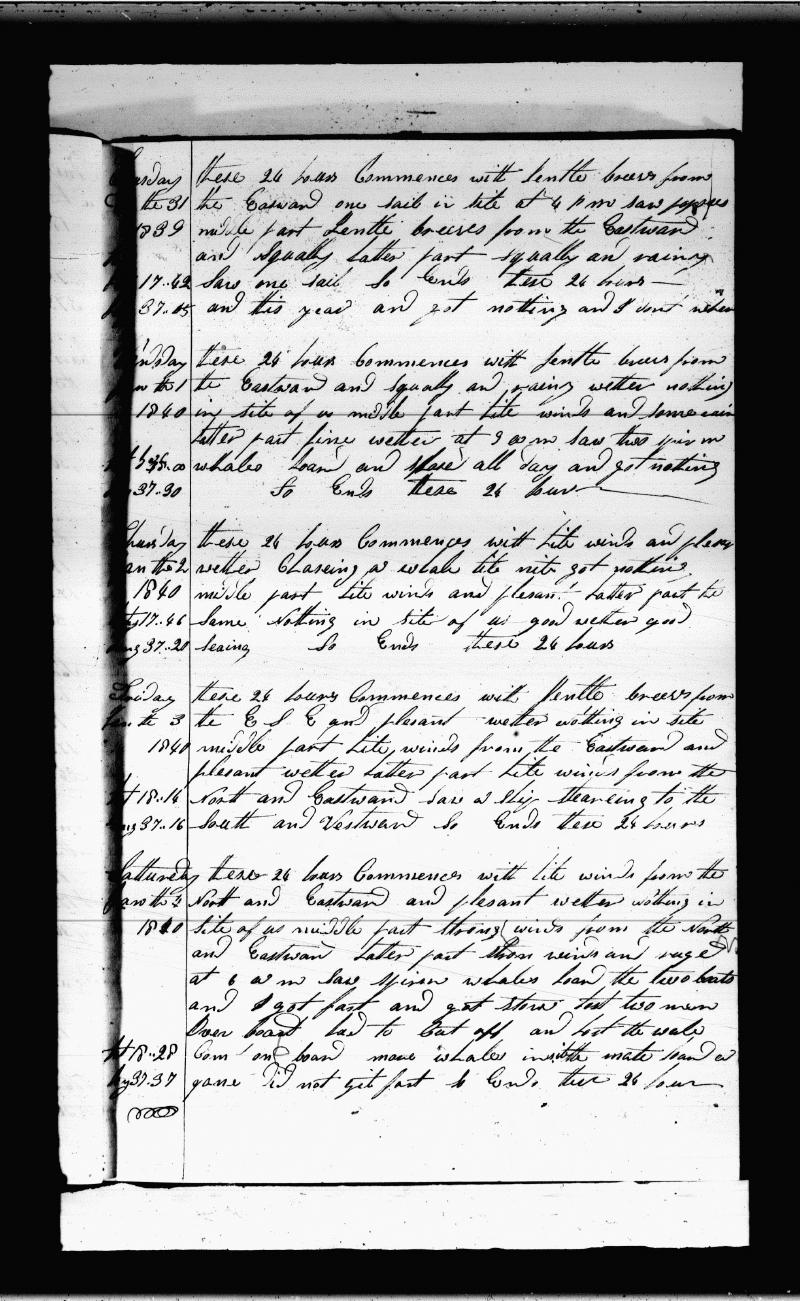 these 24 hours Commences with Jentle breses from
the 31 the Eastward one sail in site at 4 p m saw
1839 midle part Jentle breeses from the Eastward
and Squally Latter part squally and rainy
17..42 Saw one sail So Ends these 24 hours
37..05 and this year and got nothing and I dont
these 24 hours Commences with Jentle breses from
the 1 the Eastward and squally and rainy wether nothing
1840 in site of us midle part Lite winds and some rain
Latter part fine wether at 9 a m saw two
whales Load and all day and got nothing
37..30 So Ends these 24 hour
Thursday these 24 hours Commences with Lite winds and
Jan the 2 wether Chaseing a whale till nite got nothing
1840 midle part Lite winds and plesant Latter part the
17..46 same Nothing in site of us good wether good
37..20 seaing So Ends these 24 hours
Friday these 24 hours Commences with Jentle breses from
Jan the 3 the E S E and plesant wether nothing in site
1840 middle part Lite winds from the Eastward and
plesant wether Latter part Lite winds from the
18..14 North and Eastward Saw a Ship stearing to the
37..16 South and Westward So Ends these 24 hours
Satturedy these 24 hours Commences with Lite winds from the
Jan the North and Eastward and plesant wether nothing in
1840 site of us middle part strong winds from the North
and Eastward Later part winds and
at 6 a m saw whales the two boats
and I got fast and got stove two men
Over board had to Cut off and lost the whale
18..28 Com on board more whales in site the mate a
37..37 did not git fast So Ends these 24 hour